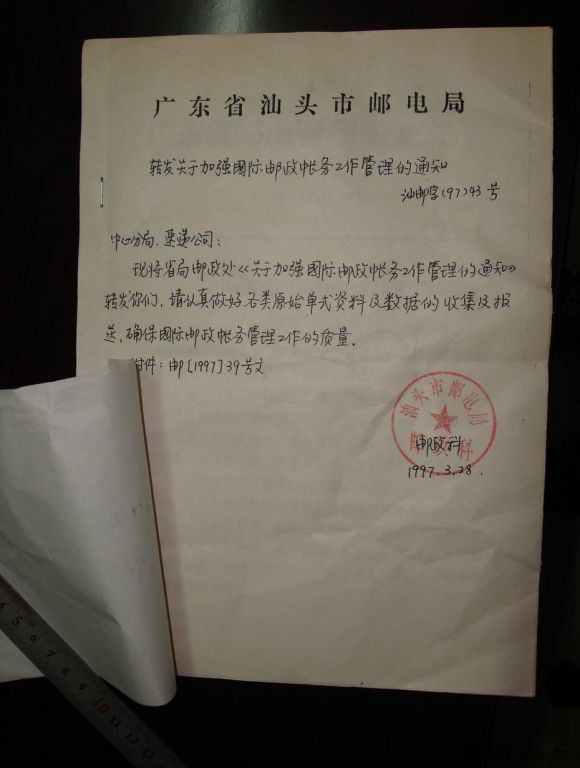 广东省汕头市邮电局
转发关于加强国际邮政帐务工作管理的通知
汕邮字(97)43号
中心分局、速递公司:
现将省局邮政处《关于加强国际邮政帐务工作管理的通知》
转发你们,请认真做好各类原始单式资料及数据的收集及报
送,确保国际邮政帐务管理工作的质量。
附件:邮[1997]39号文
汕头市邮电局
邮政科
邮政科
1997.3.28.
4 5 6 7 8 9 10 11 12 13